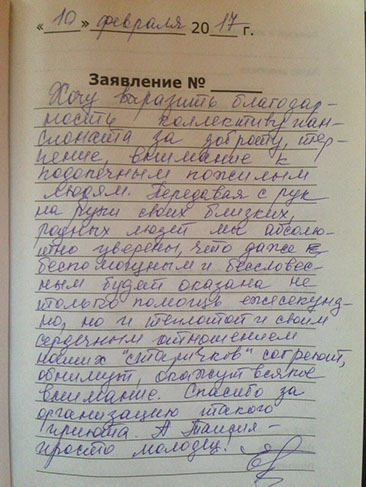 «10» февраля 2017 г.
Заявление №
Хочу выразить благодар-
ность коллективу пан-
сионата за доброту, тер-
пение, внимание к
подопечным пожилым
людям. Передавая с рук
на руки своих близких,
родных людей мы абсолю-
тно уверены, что даже
беспомощным и бессловес-
ным будет оказана не
только помощь ежесекунд-
но, но и теплотой и своим
сердечным отношением
наших "старичков" согреют,
обнимут, окажут всякое
внимание. Спасибо за
организацию такого
приюта. А Таисия -
просто молодец!